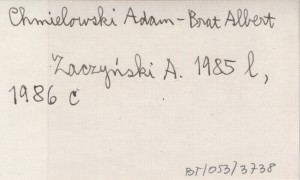 Chmielowski Adam-Brat Albert
Zaczyński A. 1985 l,
1986 c
BT/053/3738